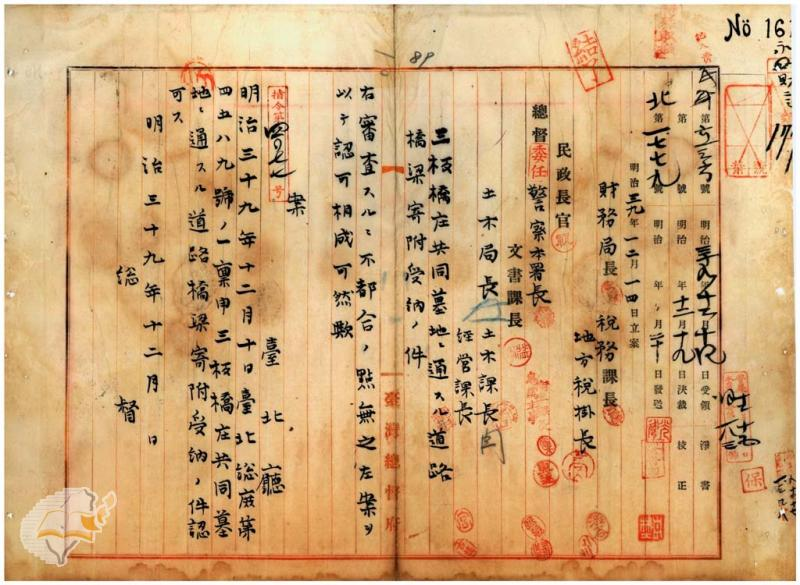 Nö 161
永
保
結了
89
民第 號 明治 年 月 日受領 淨書
第 號 明治 年十二月十九日決裁 校正
北第一七七九號 明治 年 月二十日發送
明治三九年一二月一四日立案
財務局長 稅務課長
地方稅掛長
民政長官
總督委任 警察本署長
文書課長
土木局長 土木課長
經營課長
三板橋庄共同墓地ニ通スル道路
橋梁寄附受納ノ件
右審査スルニ不都合ノ點無之左案ヲ
以テ認可相成可然歟
臺灣總督府
案
指令第 号
臺北廳
明治三十九年十二月十日臺北總庶第
四五八九號ノ一稟申三板橋庄共同墓
地ニ通スル道路橋梁寄附受納ノ件認
可ス
明治三十九年十二月 日
總督